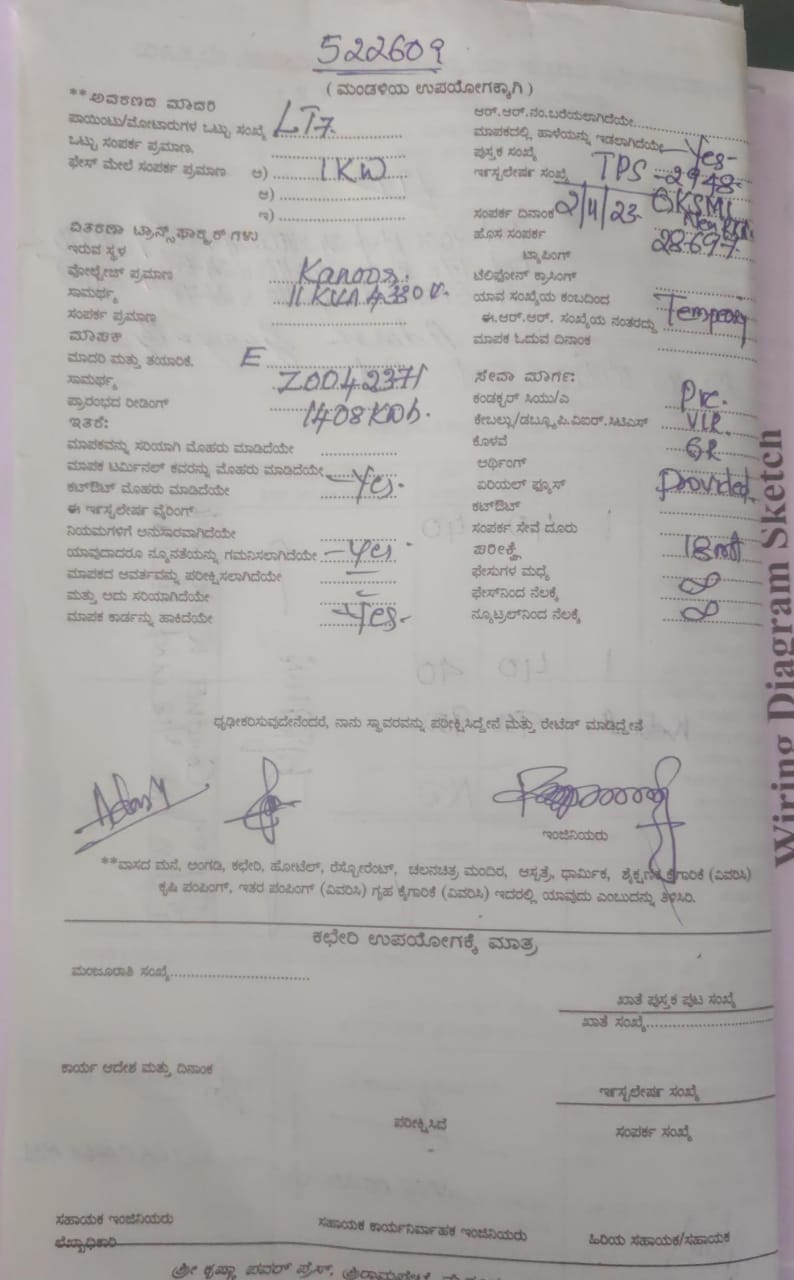 522609
( ಮಂಡಳಿಯ ಉಪಯೋಗಕ್ಕಾಗಿ )
**ಅವರಣದ ಮಾದರಿ
ಪಾಯಿಂಟು/ಮೋಟಾರುಗಳ ಒಟ್ಟು ಸಂಖ್ಯೆ LT7
ಒಟ್ಟು ಸಂಪರ್ಕ ಪ್ರಮಾಣ.
ಫೇಸ್ ಮೇಲೆ ಸಂಪರ್ಕ ಪ್ರಮಾಣ ಅ) 1KW
ಆ)
ಇ)
ವಿತರಣಾ ಟ್ರಾನ್ಸ್‌ಫಾರ್ಮರ್ ಗಳು
ಇರುವ ಸ್ಥಳ
ವೋಲ್ಟೇಜ್ ಪ್ರಮಾಣ Kanoos.
ಸಾಮರ್ಥ್ಯ
ಸಂಪರ್ಕ ಪ್ರಮಾಣ
ಮಾಪಕ
ಮಾದರಿ ಮತ್ತು ತಯಾರಿಕೆ. E
ಸಾಮರ್ಥ್ಯ Z0042371
ಪ್ರಾರಂಭದ ರೀಡಿಂಗ್ 1408KWh.
ಇತರೆ:
ಮಾಪಕವನ್ನು ಸರಿಯಾಗಿ ಮೊಹರು ಮಾಡಿದೆಯೇ
ಮಾಪಕ ಟರ್ಮಿನಲ್ ಕವರನ್ನು ಮೊಹರು ಮಾಡಿದೆಯೇ
ಕಟ್‌ಔಟ್ ಮೊಹರು ಮಾಡಿದೆಯೇ -Yes.
ಈ ಇನ್ಸ್ಟಲೇಷನ್ ವೈರಿಂಗ್
ನಿಯಮಗಳಿಗೆ ಅನುಸಾರವಾಗಿದೆಯೇ
ಯಾವುದಾದರೂ ನ್ಯೂನತೆಯನ್ನು ಗಮನಿಸಲಾಗಿದೆಯೇ -Yes
ಮಾಪಕದ ಆವರ್ತವನ್ನು ಪರೀಕ್ಷಿಸಲಾಗಿದೆಯೇ
ಮತ್ತು ಅದು ಸರಿಯಾಗಿದೆಯೇ
ಮಾಪಕ ಕಾರ್ಡನ್ನು ಹಾಕಿದೆಯೇ -Yes-
ಆರ್.ಆರ್.ನಂ.ಬರೆಯಲಾಗಿದೆಯೇ
ಮಾಪಕದಲ್ಲಿ ಹಾಳೆಯನ್ನು ಇಡಲಾಗಿದೆಯೇ -Yes-
ಪುಸ್ತಕ ಸಂಖ್ಯೆ
ಇನ್ಸ್ಟಲೇಷನ್ ಸಂಖ್ಯೆ TPS-2948-
ಸಂಪರ್ಕ ದಿನಾಂಕ 2/11/23
ಹೊಸ ಸಂಪರ್ಕ 28697
ಟ್ಯಾಪಿಂಗ್
ಟೆಲಿಫೋನ್ ಕ್ರಾಸಿಂಗ್
ಯಾವ ಸಂಖ್ಯೆಯ ಕಂಬದಿಂದ
ಈ.ಆರ್.ಆರ್. ಸಂಖ್ಯೆಯ ನಂತರದ್ದು
ಮಾಪಕ ಓದುವ ದಿನಾಂಕ
ಸೇವಾ ಮಾರ್ಗ:
ಕಂಡಕ್ಟರ್ ಸಿಯು/ಎ PVC.
ಕೇಬಲ್ಲು/ಡಬ್ಲೂ.ಪಿ.ವಿ.ಐಆರ್.ಸಿ.ಟಿಎಸ್ VIR.
ಕೊಳವೆ GR
ಅರ್ಥಿಂಗ್
ಏರಿಯಲ್ ಫ್ಯೂಸ್ Provided
ಕಟ್‌ಔಟ್
ಸಂಪರ್ಕ ಸೇವೆ ದೂರು
ಪರೀಕ್ಷೆ 18mt
ಫೇಸುಗಳ ಮಧ್ಯೆ ∞
ಫೇಸ್‌ನಿಂದ ನೆಲಕ್ಕೆ ∞
ನ್ಯೂಟ್ರಲ್‌ನಿಂದ ನೆಲಕ್ಕೆ
ಧೃಢೀಕರಿಸುವುದೇನೆಂದರೆ, ನಾನು ಸ್ಥಾವರವನ್ನು ಪರೀಕ್ಷಿಸಿದ್ದೇನೆ ಮತ್ತು ರೇಟೆಡ್ ಮಾಡಿದ್ದೇನೆ
ಇಂಜಿನಿಯರು
**ವಾಸದ ಮನೆ, ಅಂಗಡಿ, ಕಛೇರಿ, ಹೋಟೆಲ್, ರೆಸ್ಟೋರೆಂಟ್, ಚಲನಚಿತ್ರ ಮಂದಿರ, ಆಸ್ಪತ್ರೆ, ಧಾರ್ಮಿಕ, ಶೈಕ್ಷಣಿಕ ಕೈಗಾರಿಕೆ (ವಿವರಿಸಿ)
ಕೃಷಿ ಪಂಪಿಂಗ್, ಇತರ ಪಂಪಿಂಗ್ (ವಿವರಿಸಿ) ಗೃಹ ಕೈಗಾರಿಕೆ (ವಿವರಿಸಿ) ಇದರಲ್ಲಿ ಯಾವುದು ಎಂಬುದನ್ನು ತಿಳಿಸಿರಿ.
ಕಛೇರಿ ಉಪಯೋಗಕ್ಕೆ ಮಾತ್ರ
ಮಂಜೂರಾತಿ ಸಂಖ್ಯೆ
ಖಾತೆ ಪುಸ್ತಕ ಪುಟ ಸಂಖ್ಯೆ
ಖಾತೆ ಸಂಖ್ಯೆ
ಕಾರ್ಯ ಆದೇಶ ಮತ್ತು ದಿನಾಂಕ
ಇನ್ಸ್ಟಲೇಷನ್ ಸಂಖ್ಯೆ
ಪರೀಕ್ಷಿಸಿದೆ
ಸಂಪರ್ಕ ಸಂಖ್ಯೆ
ಸಹಾಯಕ ಇಂಜಿನಿಯರು
ಲೆಖ್ಖಾಧಿಕಾರಿ
ಸಹಾಯಕ ಕಾರ್ಯನಿರ್ವಾಹಕ ಇಂಜಿನಿಯರು
ಹಿರಿಯ ಸಹಾಯಕ/ಸಹಾಯಕ
ಶ್ರೀ ಕೃಷ್ಣಾ ಪವರ್ ಪ್ರೆಸ್,
Wiring Diagram Sketch